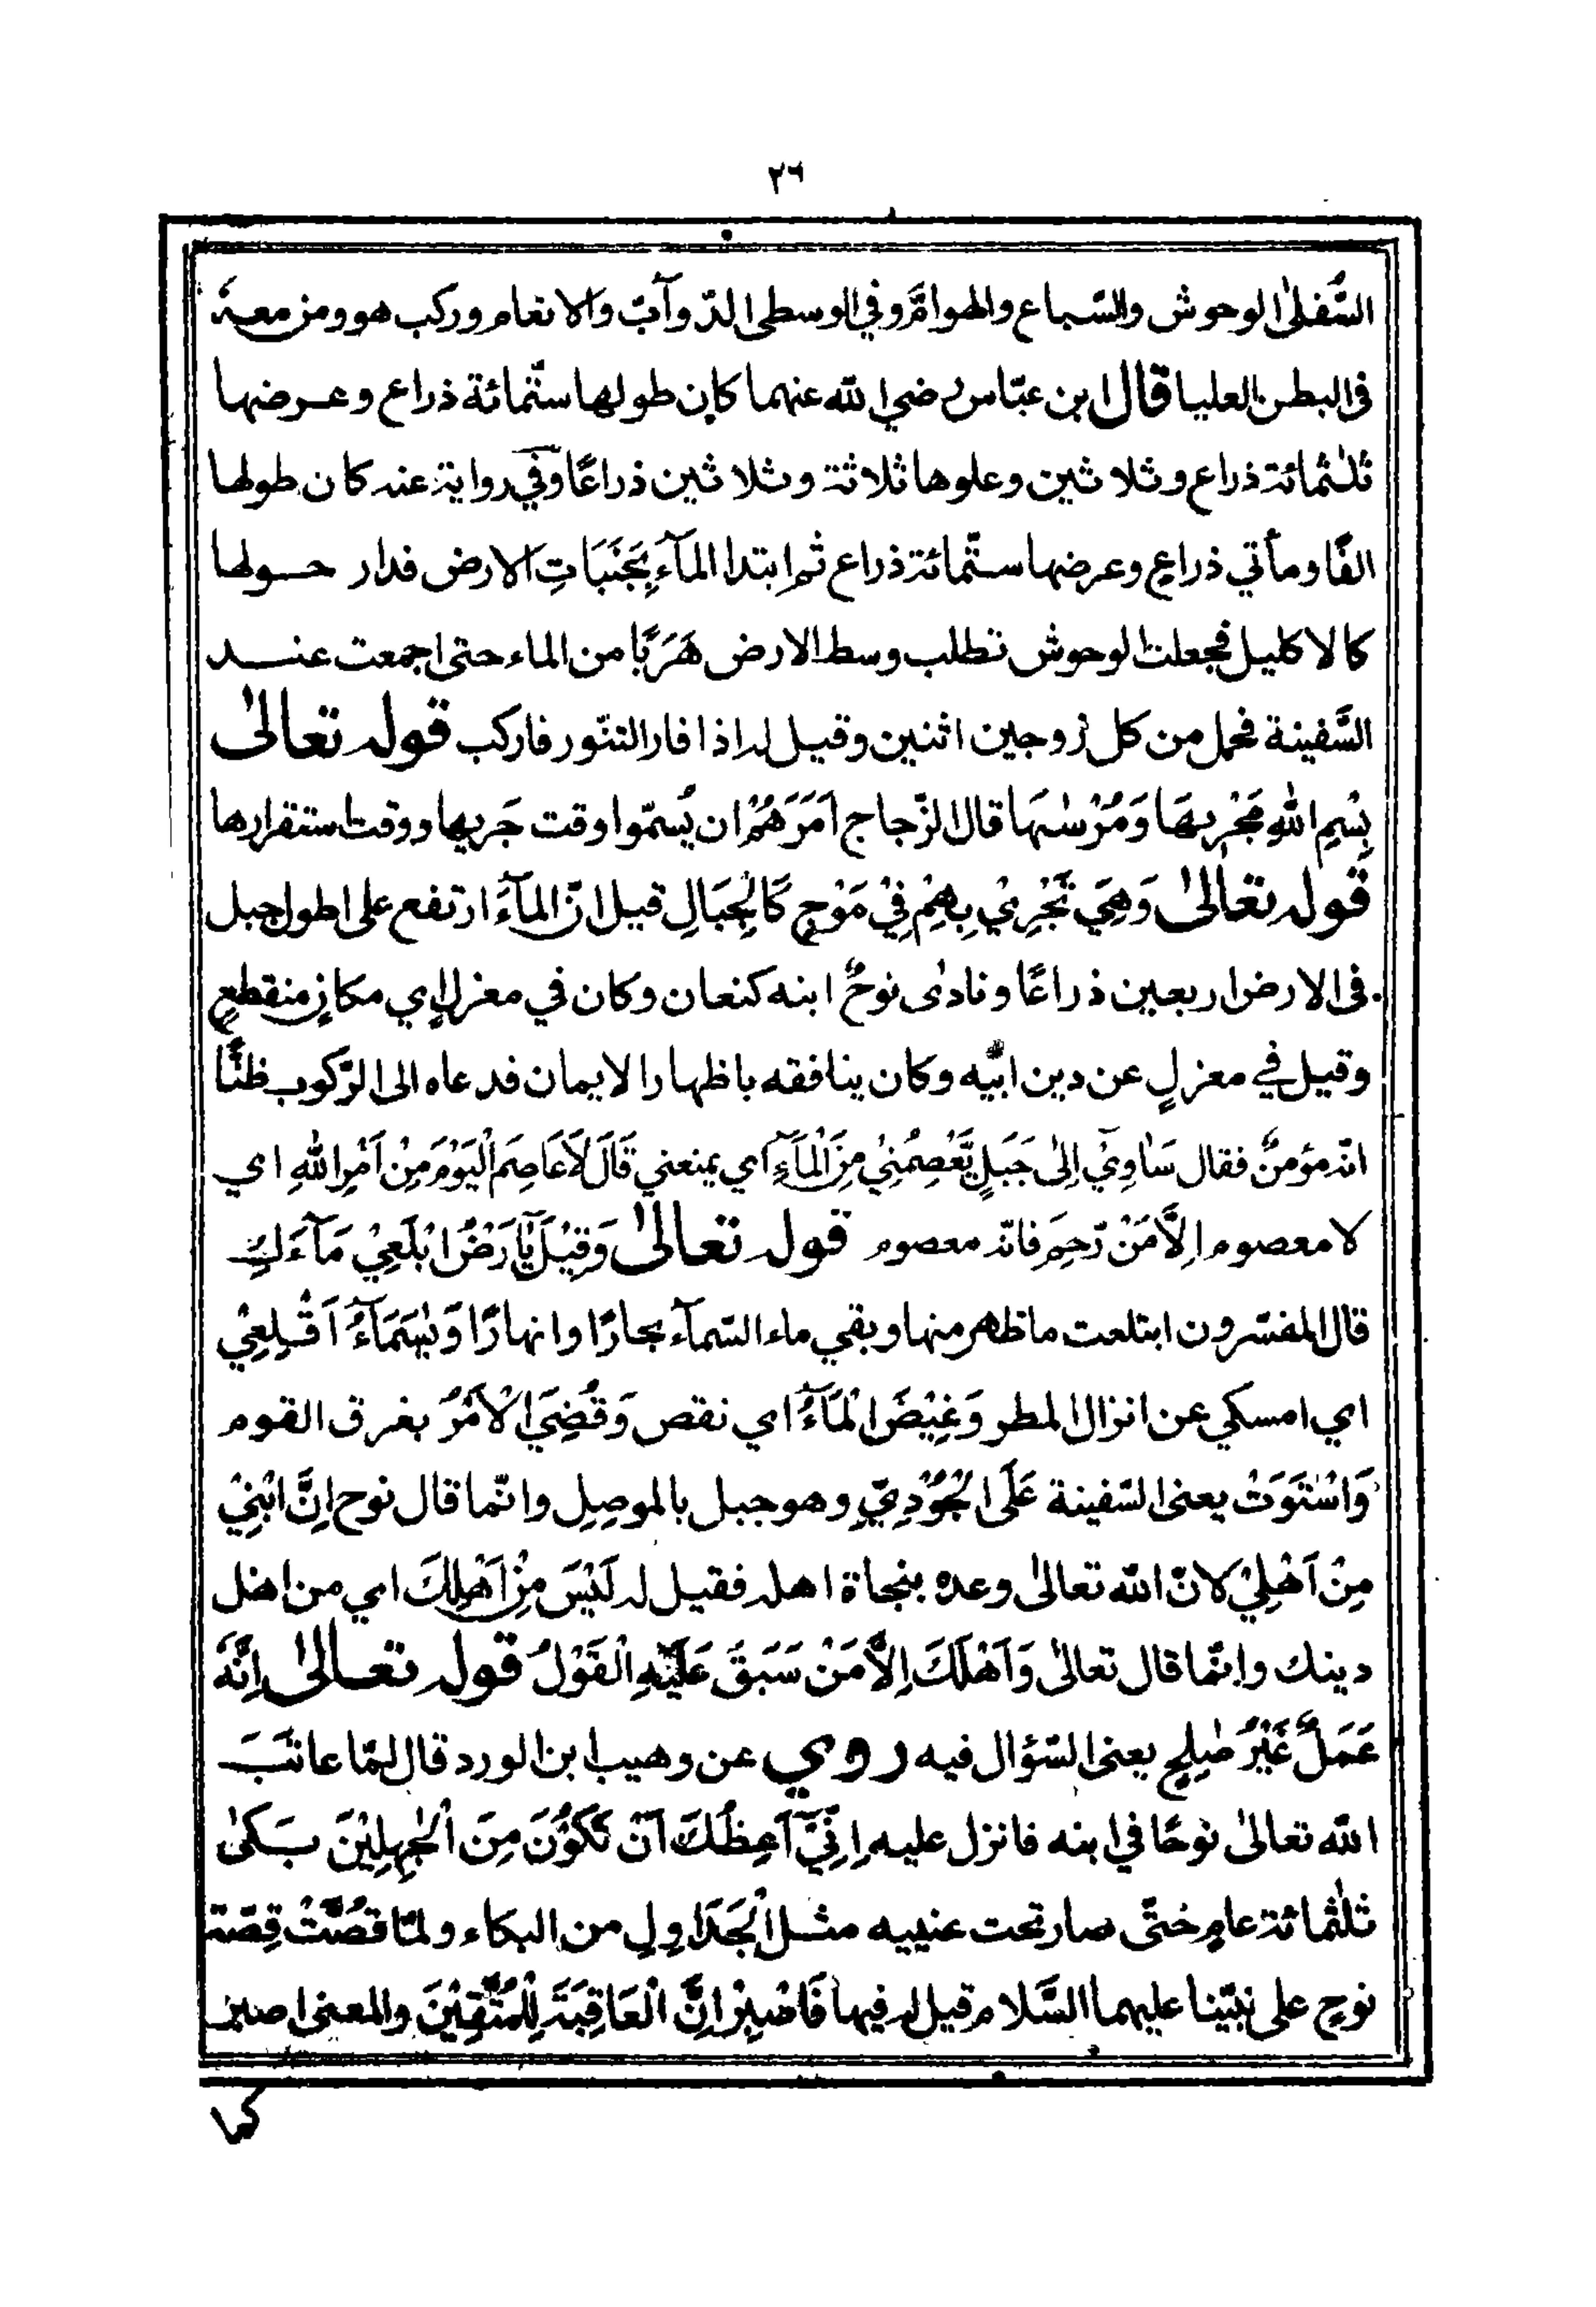 ٢٦
السُّفلىٰ الوحوش والسّباع والهوامّ وفي الوسطى الدّوآبّ والانعام وركب هو ومن معهٗ
فى البطن العليا قال ابن عبّاس رضي الله عنهما كان طولها ستّمائة ذراع وعرضها
ثلٰثمائة ذراع وثلاثين وعلوها ثلاثة وثلاثين ذراعًا وفي رواية عنه كان طولها
الفًا ومأتي ذراعٍ وعرضها ستّمائة ذراع ثم ابتدا المآء بِجَنَبَاتِ الارض فدار حولها
كالاكليل فجعلت الوحوش تطلب وسط الارض هَرَبًا من الماء حتى اجمعت عند
السَّفينة فحمل من كل زوجين اثنين وقيل له اذا فار التنّور فاركب قوله تعالىٰ
بِسْمِ اللهِ مَجْرٖىهَا وَمُرْسٰىهَا قال الزّجاج اَمَرَهُمْ ان يُسمّوا وقت جَريها ووقت استقرارها
قوله تعالىٰ وَهِيَ تَجْرِيْ بِهِمْ فِيْ مَوْجٍ كَالْجِبَالِ قيل انّ المآءَ ارتفع على اطول جبل
فى الارض اربعين ذراعًا ونادٰى نوحٌ ابنه كنعان وكان في معزل اي مكانٍ منقطعٍ
وقيل في معزلٍ عن دين ابيه وكان ينافقه باظهار الايمان فدعاه الى الرّكوب ظنًّا
انّه مؤمنٌ فقال سَاٰوِيْٓ اِلىٰ جَبَلٍ يَّعْصِمُنِيْ مِنَ الْمَآءِ اي يمنعني قَالَ لَا عَاصِمَ الْيَوْمَ مِنْ اَمْرِ اللهِ اي
لا معصوم اِلَّا مَنْ رَّحِمَ فانّه معصوم قوله تعالىٰ وَقِيْلَ يٰٓاَرْضُ ابْلَعِيْ مَآءَكِ
قال المفسّرون ابتلعت ما ظهر منها وبقي ماء السّمآء بحارًا وانهارًا وَيٰسَمَآءُ اَقْلِعِيْ
اي امسكي عن انزال المطر وَغِيْضَ الْمَآءُ اي نقص وَقُضِيَ الْاَمْرُ بغرق القوم
وَاسْتَوَتْ يعنى السّفينة عَلَى الْجُوْدِيِّ وهو جبل بالموصِلِ وانّما قال نوح اِنَّ ابْنِيْ
مِنْ اَهْلِيْ لانّ الله تعالىٰ وعده بنجاة اهله فقيل له لَيْسَ مِنْ اَهْلِكَ اي من اهل
دينك وانّما قال تعالىٰ وَاَهْلَكَ اِلَّا مَنْ سَبَقَ عَلَيْهِ الْقَوْلُ قوله تعالىٰ اِنَّهٗ
عَمَلٌ غَيْرُ صٰلِحٍ يعنى السّؤال فيه روي عن وهيب ابن الورد قال لمّا عاتَبَ
الله تعالىٰ نوحًا في ابنه فانزل عليه اِنِّيْٓ اَعِظُكَ اَنْ تَكُوْنَ مِنَ الْجٰهِلِيْنَ بَكىٰ
ثلٰثمائة عامٍ حتّى صار تحت عنييه مثل الْجَدَاوِلِ من البكاء ولمّا قُصَّتْ قِصّة
نوحٍ على نبيّنا عليهما السَّلام قيل له فيها فَاصْبِرْ اِنَّ الْعَاقِبَةَ لِلْمُتَّقِيْنَ والمعنى اصبر
كما